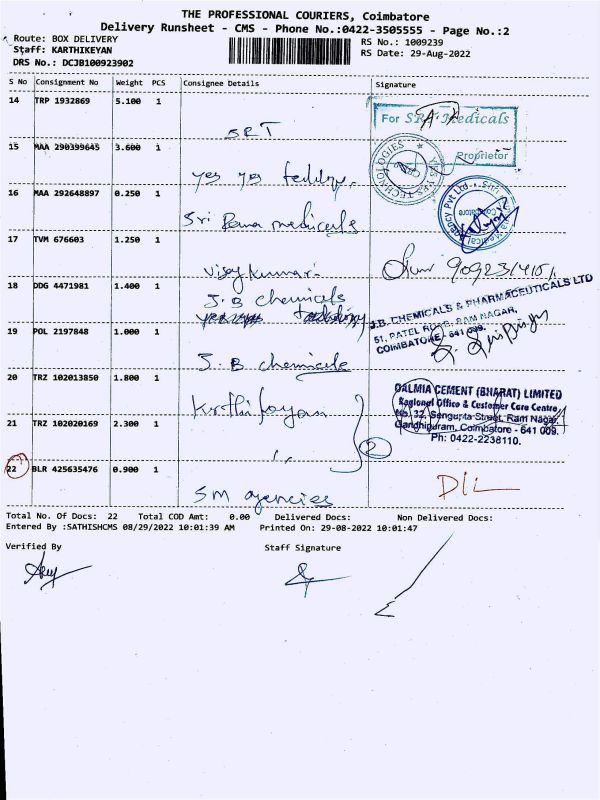 THE PROFESSIONAL COURIERS, Coimbatore
Delivery Runsheet - CMS - Phone No.:0422-3505555 - Page No.:2
Route: BOX DELIVERY
Staff: KARTHIKEYAN
DRS No.: DCJB100923902
RS No.: 1009239
RS Date: 29-Aug-2022
S No Consignment No Weight PCS Consignee Details Signature
14 TRP 1932869 5.100 1
SRT
For SRI Medicals
Proprietor
15 MAA 290399645 3.600 1
yes yes
YES YES TECHNOLOGIES
16 MAA 292648897 0.250 1
Sri Rama medicals
Agency Pvt Ltd
17 TVM 676603 1.250 1
Vijay Kumar
18 DDG 4471981 1.400 1
J.B chemicals
J.B. CHEMICALS & PHARMACEUTICALS LTD
51, PATEL ROAD, RAM NAGAR,
COIMBATORE - 641 009.
19 POL 2197848 1.000 1
J.B chemicals
20 TRZ 102013850 1.800 1
DALMIA CEMENT (BHARAT) LIMITED
Regional Office & Customer Care Centre
No 32, Sengupta Street, Ram Nagar,
Gandhipuram, Coimbatore - 641 009.
Ph: 0422-2238110.
21 TRZ 102020169 2.300 1
2
22 BLR 425635476 0.900 1
SM agencies
D/L
Total No. Of Docs: 22 Total COD Amt: 0.00 Delivered Docs: Non Delivered Docs:
Entered By :SATHISHCMS 08/29/2022 10:01:39 AM Printed On: 29-08-2022 10:01:47
Verified By Staff Signature